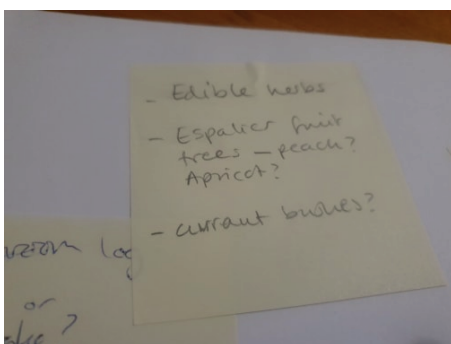 - Edible herbs
- Espalier fruit
trees - peach?
Apricot?
- currant bushes?
or